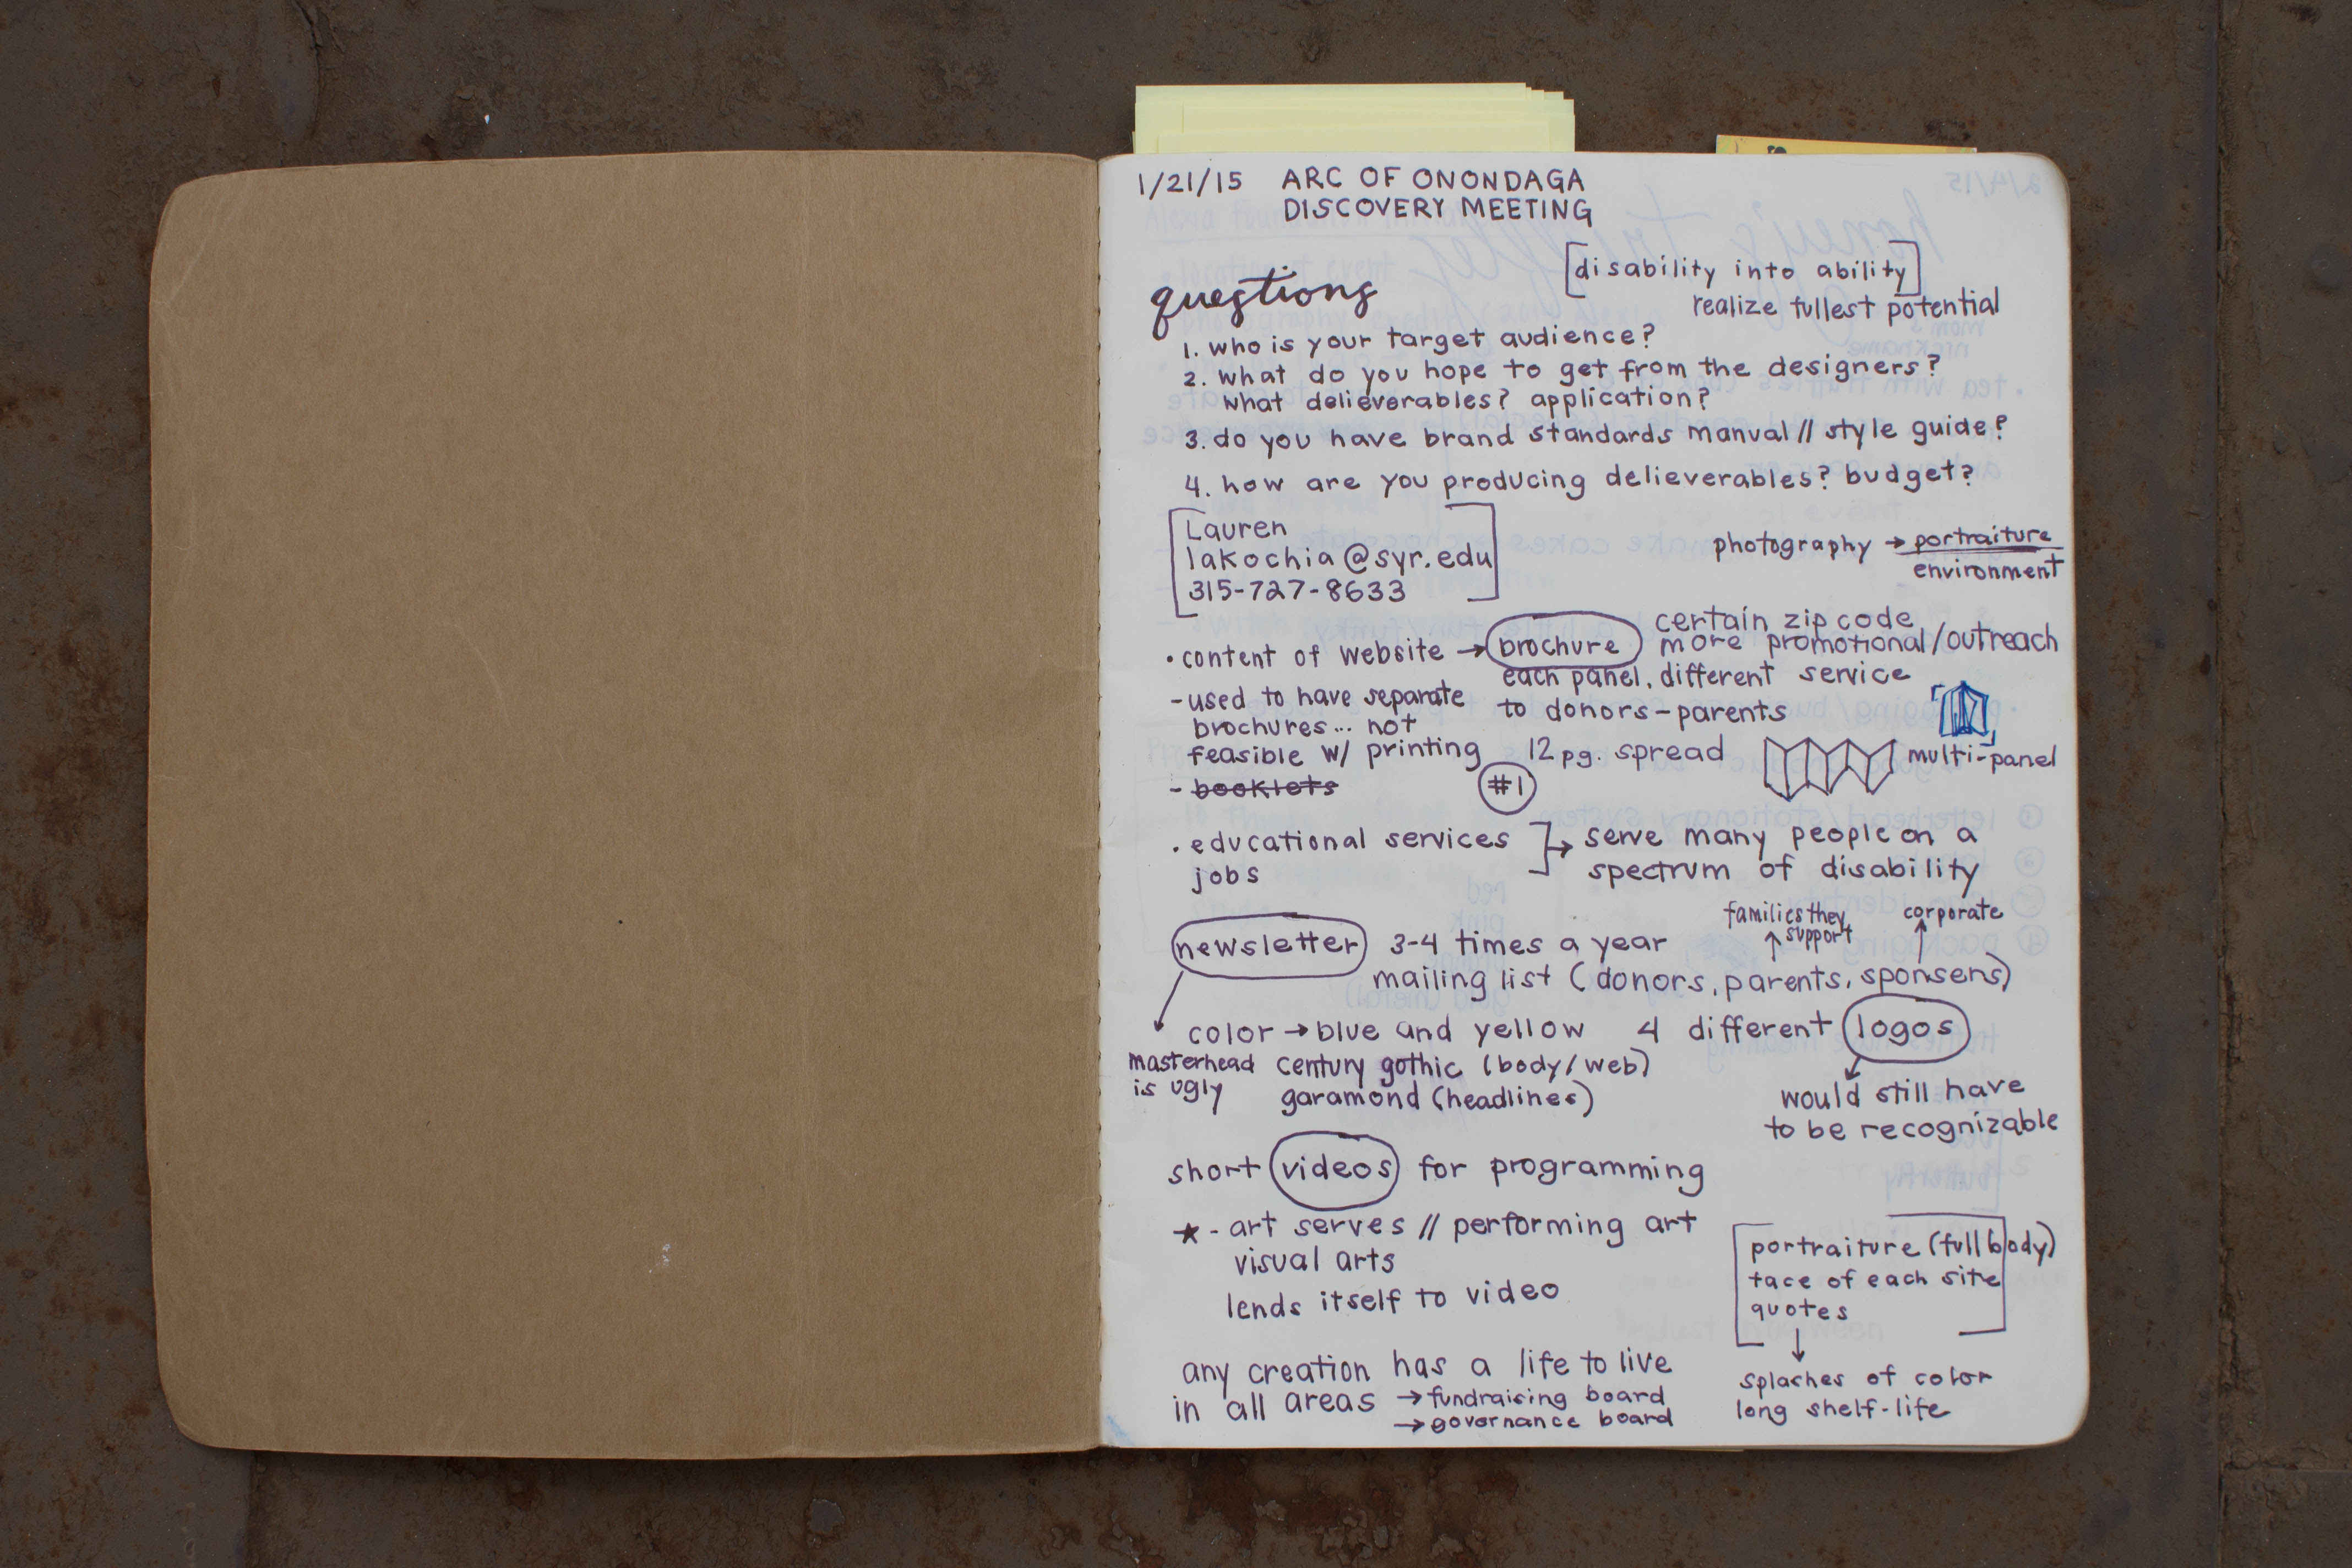 1/21/15 ARC OF ONONDAGA
DISCOVERY MEETING
[disability into ability]
realize fullest potential
questions
1. who is your target audience?
2. what do you hope to get from the designers?
what delieverables? application?
3. do you have brand standards manual // style guide?
4. how are you producing delieverables? budget?
Lauren
lakochia@syr.edu
315-727-8633
photography → portraiture
environment
certain zip code
• content of website → brochure more promotional/outreach
each panel, different service
to donors - parents
- used to have separate
brochures... not
feasible w/ printing
- booklets
12 pg. spread
multi-panel
#1
• educational services
jobs
→ serve many people on a
spectrum of disability
families they
support
corporate
newsletter 3-4 times a year
mailing list (donors, parents, sponsers)
color → blue and yellow
masterhead
is ugly
century gothic (body/web)
garamond (headlines)
4 different logos
would still have
to be recognizable
short videos for programming
★ - art serves // performing art
visual arts
lends itself to video
portraiture (full body)
face of each site
quotes
splashes of color
long shelf-life
any creation has a life to live
in all areas → fundraising board
→ governance board